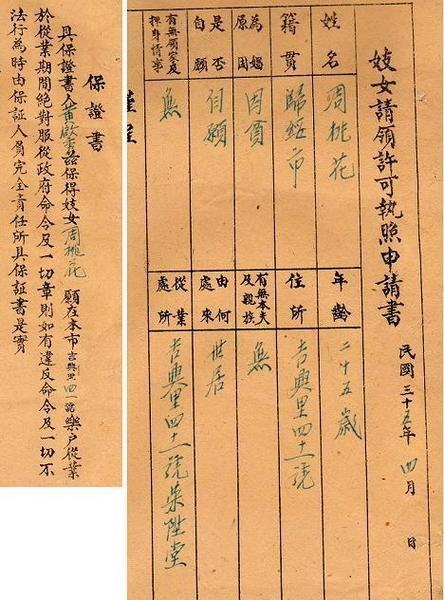 妓女請領許可執照申請書
民國三十五年 四月 日
姓名 周桃花 年齡 二十五歲
籍貫 歸綏市 住所 吉興里四十一號
為娼原因 因貧 有無本夫及親族 無
是否自願 自願 由何處來 世居
有無領家及押身情事 無 從業處所 吉興里四十一號榮陞堂
謹呈
保證書
具保證書人 茲保得妓女周桃花 願在本市吉興里四一號樂戶從業
於從業期間絕對服從政府命令及一切章則如有違反命令及一切不
法行為時由保証人負完全責任所具保証書是實